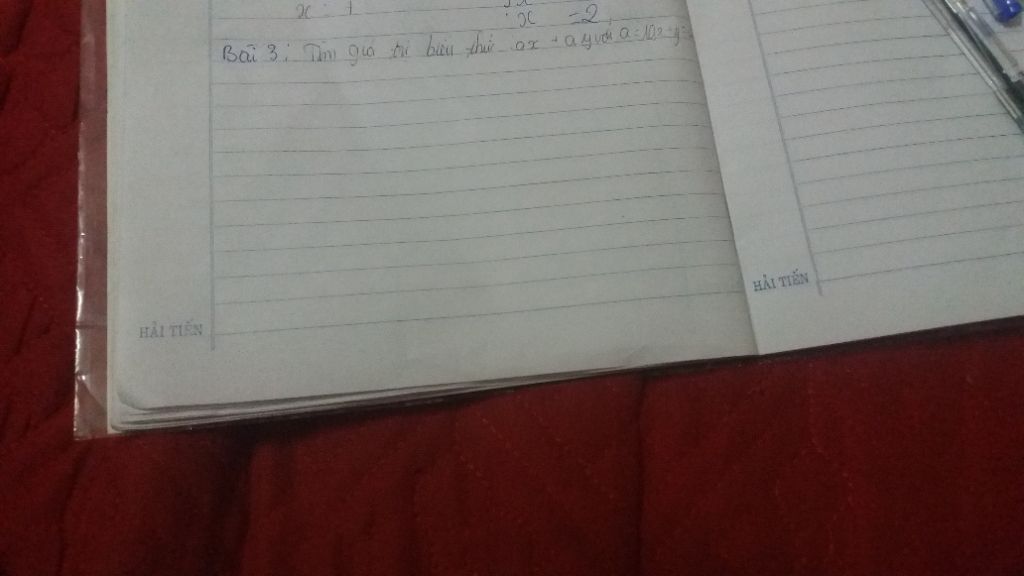 x = 1
x = 2
Bài 3: Tìm giá trị biểu thức ax + ay với a = 10
HẢI TIẾN
HẢI TIẾN